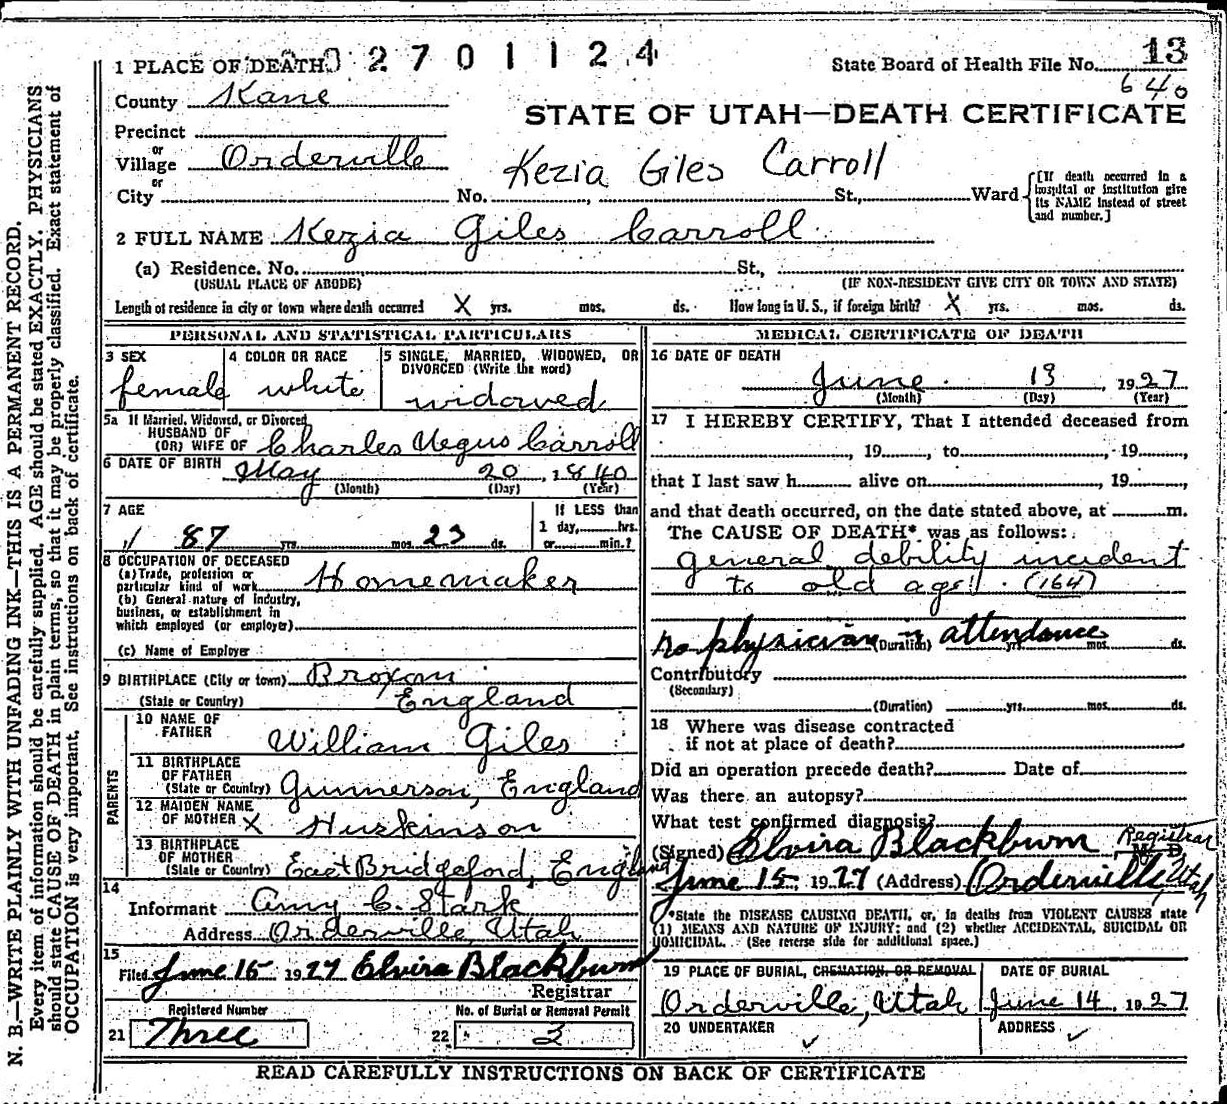 N. B.—WRITE PLAINLY WITH UNFADING INK—THIS IS A PERMANENT RECORD.
Every item of information should be carefully supplied. AGE should be stated EXACTLY. PHYSICIANS
should state CAUSE OF DEATH in plain terms, so that it may be properly classified. Exact statement of
OCCUPATION is very important. See instructions on back of certificate.
2 7 0 1 1 2 4
1 PLACE OF DEATH
State Board of Health File No. 13
640
County Kane
STATE OF UTAH—DEATH CERTIFICATE
Precinct
or
Village Orderville
Kezia Giles Carroll
or
City No. St., Ward
[If death occurred in a
hospital or institution give
its NAME instead of street
and number.]
2 FULL NAME Kezia Giles Carroll
(a) Residence. No. St.,
(USUAL PLACE OF ABODE) (IF NON-RESIDENT GIVE CITY OR TOWN AND STATE)
Length of residence in city or town where death occurred X yrs. mos. ds. How long in U. S., if foreign birth? X yrs. mos. ds.
PERSONAL AND STATISTICAL PARTICULARS
3 SEX
female
4 COLOR OR RACE
white
5 SINGLE, MARRIED, WIDOWED, OR
DIVORCED (Write the word)
widowed
5a If Married, Widowed, or Divorced
HUSBAND OF
(OR) WIFE OF Charles Negus Carroll
6 DATE OF BIRTH May 20, 1840
(Month) (Day) (Year)
7 AGE
87 yrs. mos. 23 ds.
If LESS than
1 day, hrs.
or min.?
8 OCCUPATION OF DECEASED
(a) Trade, profession or
particular kind of work Homemaker
(b) General nature of industry,
business, or establishment in
which employed (or employer)
(c) Name of Employer
9 BIRTHPLACE (City or town) Broxon
(State or Country) England
PARENTS
10 NAME OF
FATHER William Giles
11 BIRTHPLACE
OF FATHER
(State or Country) Gunnerson, England
12 MAIDEN NAME
OF MOTHER X Huskinson
13 BIRTHPLACE
OF MOTHER
(State or Country) East Bridgeford, England
14
Informant Amy C. Stark
Address Orderville, Utah
15
Filed June 15 1927 Elvira Blackburn
Registrar
Registered Number
21 Three
No. of Burial or Removal Permit
22 3
MEDICAL CERTIFICATE OF DEATH
16 DATE OF DEATH
June 13, 1927
(Month) (Day) (Year)
17 I HEREBY CERTIFY, That I attended deceased from
, 19 , to , 19 ,
that I last saw h alive on , 19 ,
and that death occurred, on the date stated above, at m.
The CAUSE OF DEATH* was as follows:
general debility incident
to old age (164)
no physician in attendance
(Duration) yrs. mos. ds.
Contributory
(Secondary)
(Duration) yrs. mos. ds.
18 Where was disease contracted
if not at place of death?
Did an operation precede death? Date of
Was there an autopsy?
What test confirmed diagnosis?
(Signed) Elvira Blackburn Registrar M. D.
June 15, 1927 (Address) Orderville, Utah
*State the DISEASE CAUSING DEATH, or, in deaths from VIOLENT CAUSES, state
(1) MEANS AND NATURE OF INJURY; and (2) whether ACCIDENTAL, SUICIDAL OR
HOMICIDAL. (See reverse side for additional space.)
19 PLACE OF BURIAL, CREMATION, OR REMOVAL
Orderville, Utah
DATE OF BURIAL
June 14, 1927
20 UNDERTAKER
✓
ADDRESS ✓
READ CAREFULLY INSTRUCTIONS ON BACK OF CERTIFICATE